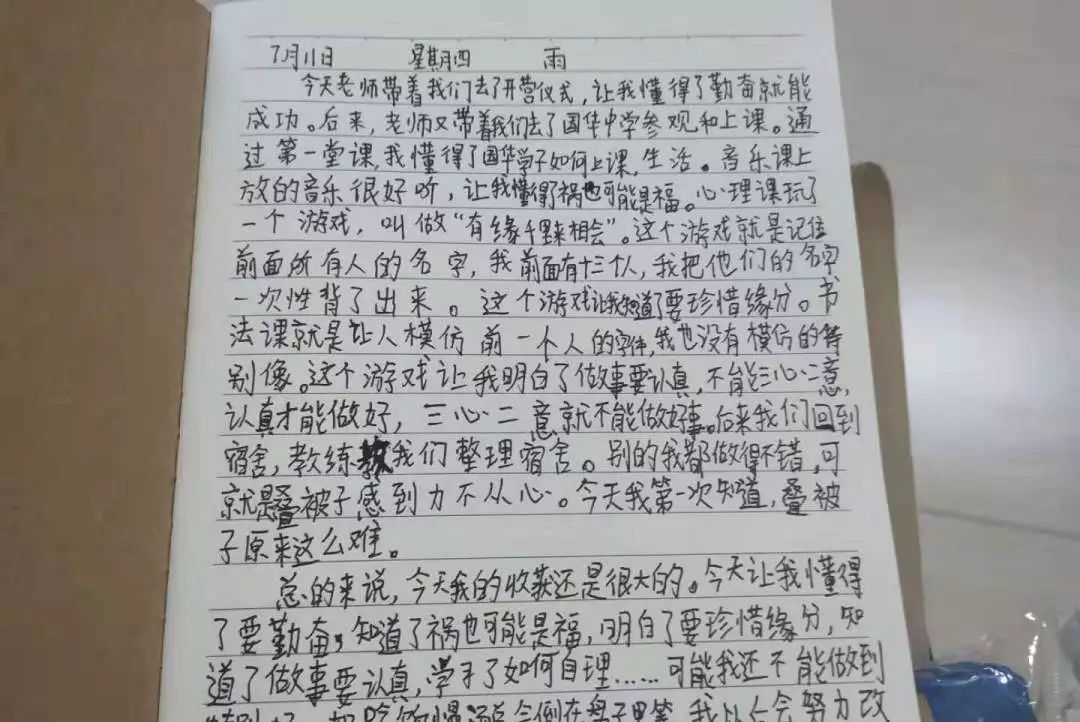 7月11日 星期四 雨
今天老师带着我们去了开营仪式,让我懂得了勤奋就能
成功。后来,老师又带着我们去了国华中学参观和上课。通
过第一堂课,我懂得了国华学子如何上课,生活。音乐课上
放的音乐很好听,让我懂得了祸也可能是福。心理课玩了
一个游戏,叫做“有缘千里来相会”。这个游戏就是记住
前面所有人的名字,我前面有十三个人,我把他们的名字
一次性背了出来。这个游戏让我知道了要珍惜缘分。书
法课就是让人模仿前一个人的字体,我也没有模仿的特
别像。这个游戏让我明白了做事要认真,不能三心二意,
认真才能做好,三心二意就不能做好事。后来我们回到
宿舍,教练教我们整理宿舍。别的我都做得不错,可
就是叠被子感到力不从心。今天我第一次知道,叠被
子原来这么难。
总的来说,今天我的收获还是很大的。今天让我懂得
了要勤奋,知道了祸也可能是福,明白了要珍惜缘分,知
道了做事要认真,学于了如何自理……可能我还不能做到
会倒在盘子里等,我以后会努力改